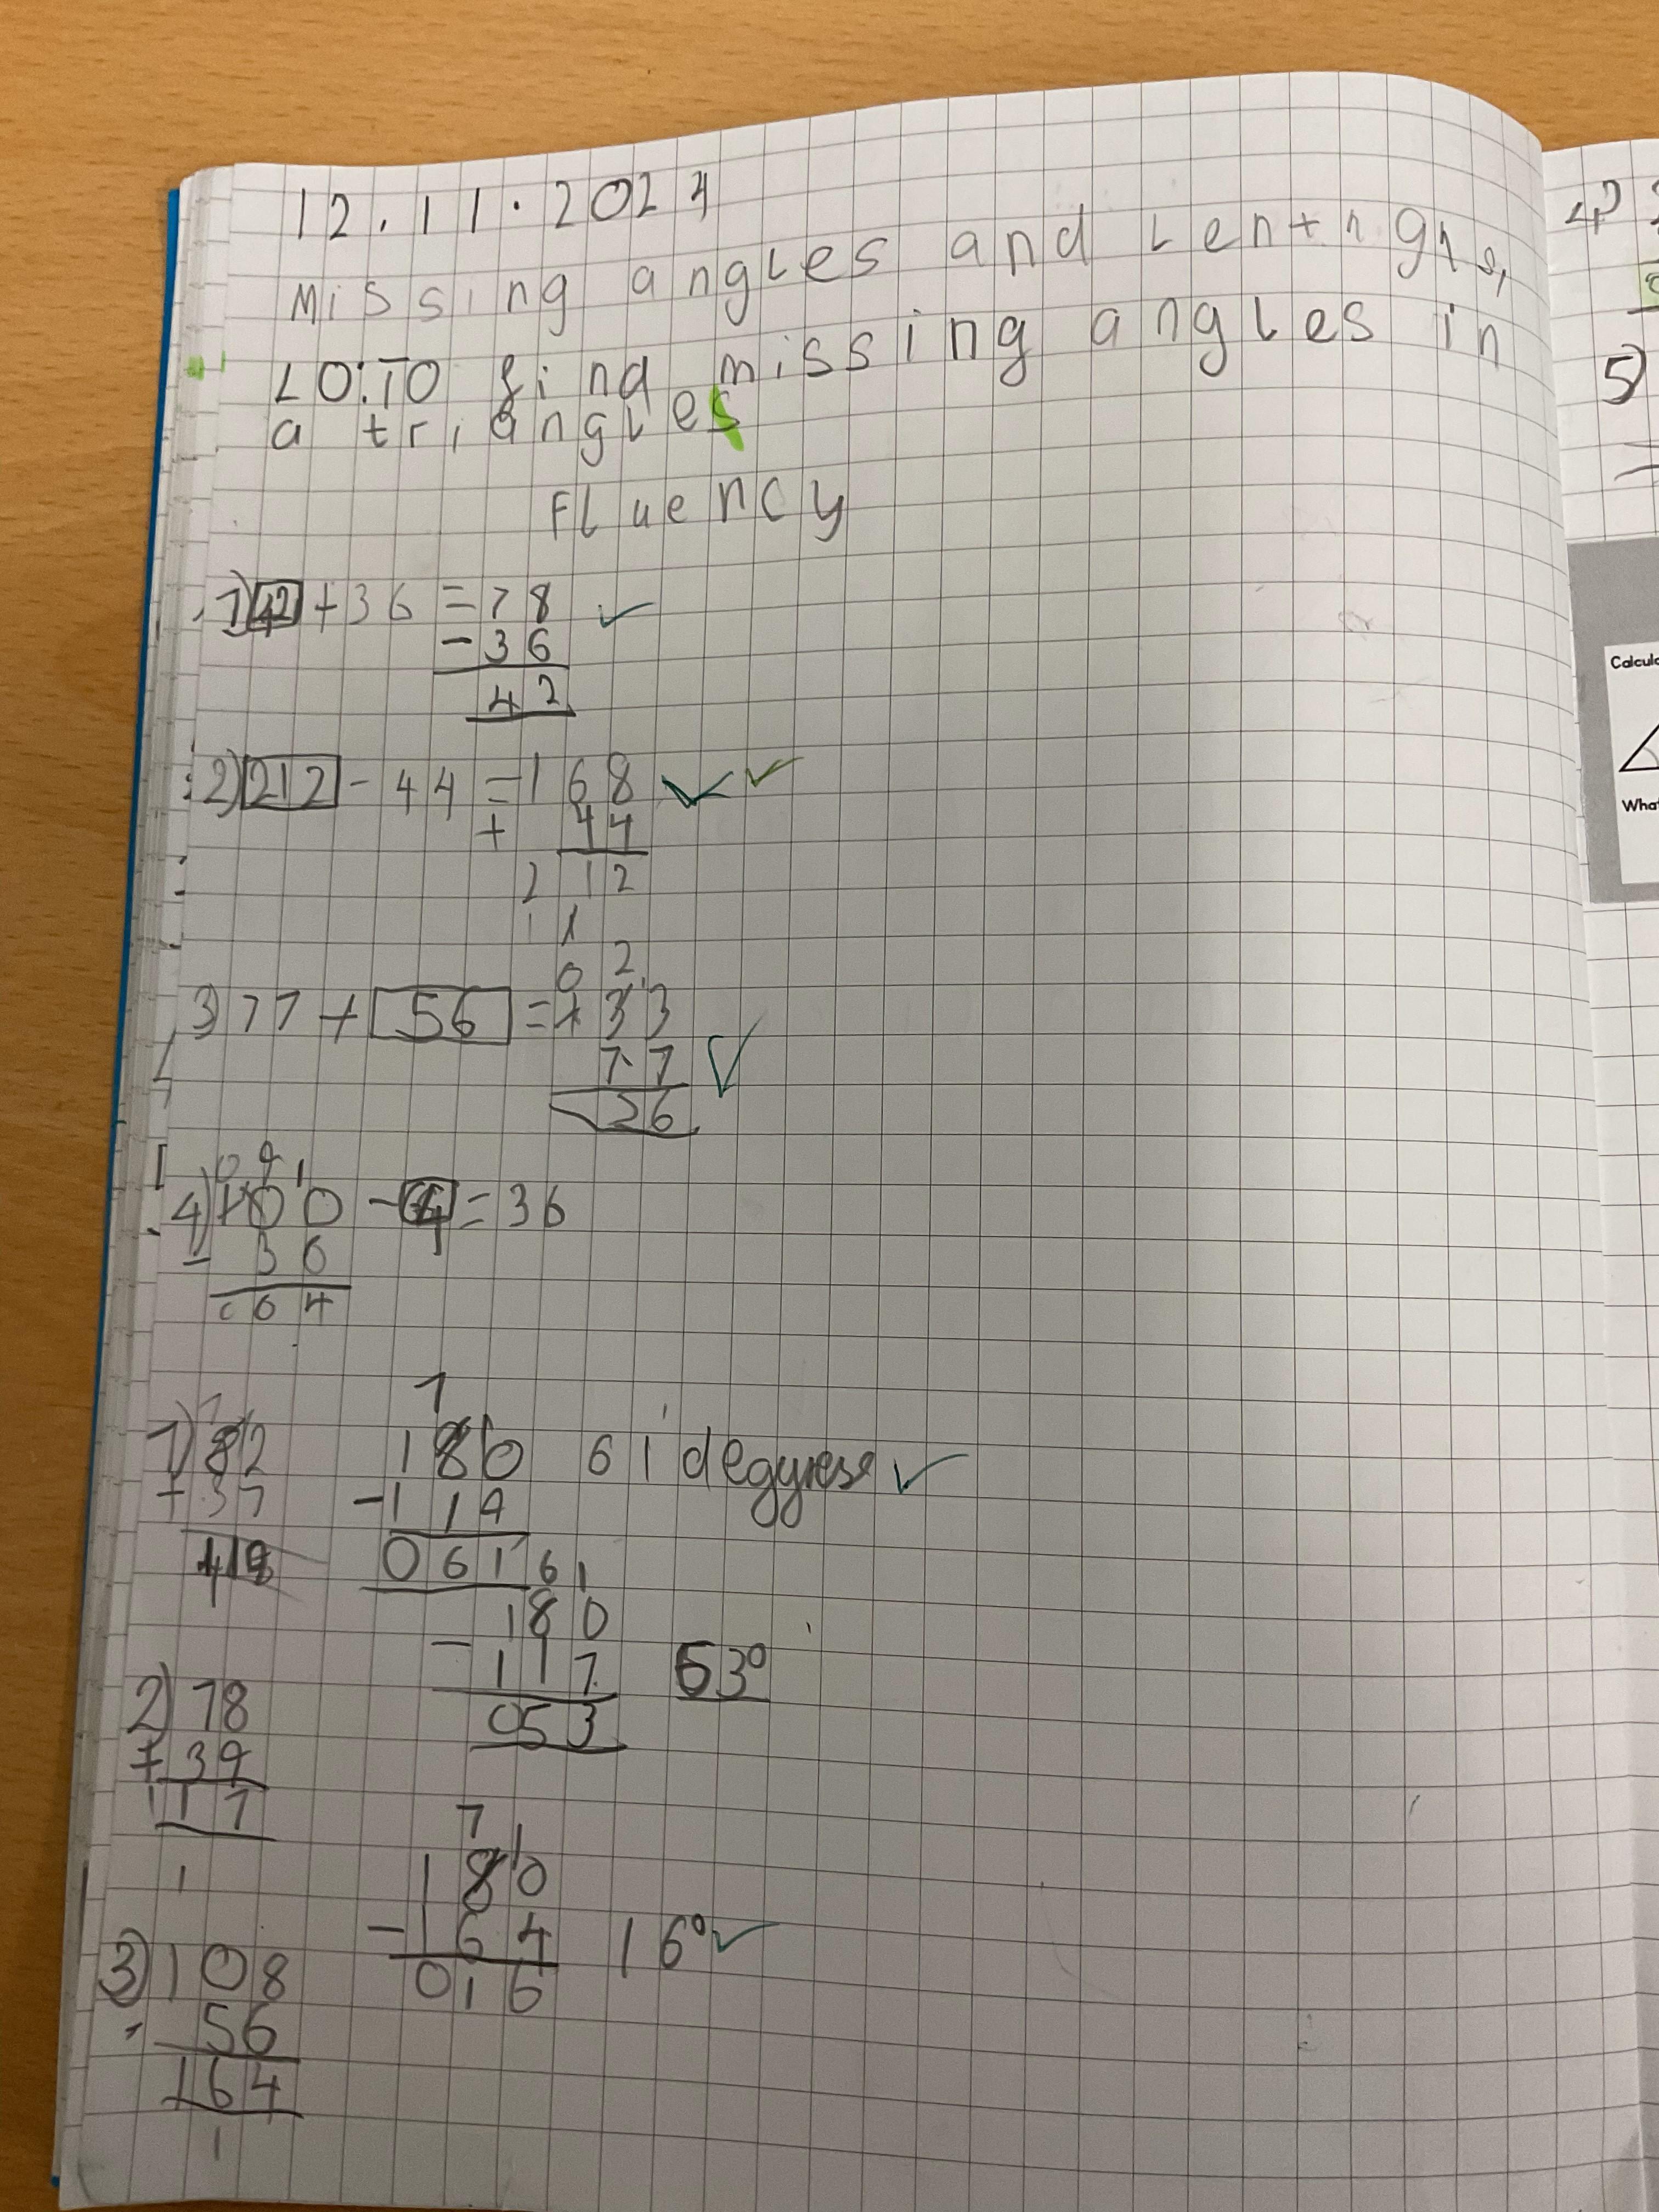 12.11.2024
Missing angles and Lentnghs,
LO:TO find missing angles in
a triangles
Fluency
1) 42 + 36 = 78
- 36
42
2) 212 - 44 = 168
+ 44
2 12
1 1
0 2
3) 77 + 56 = 133
77
56
0 9 1
4) 100 - 64 = 36
- 36
064
7
1) 82 180 61 degyrese
+ 37 - 119
119 061
6 1
180
- 117 63°
053
2) 78
+ 39
117
1
7 1
180
- 164 16°
016
3) 108
56
164
1
4)
5)
Calcul
What